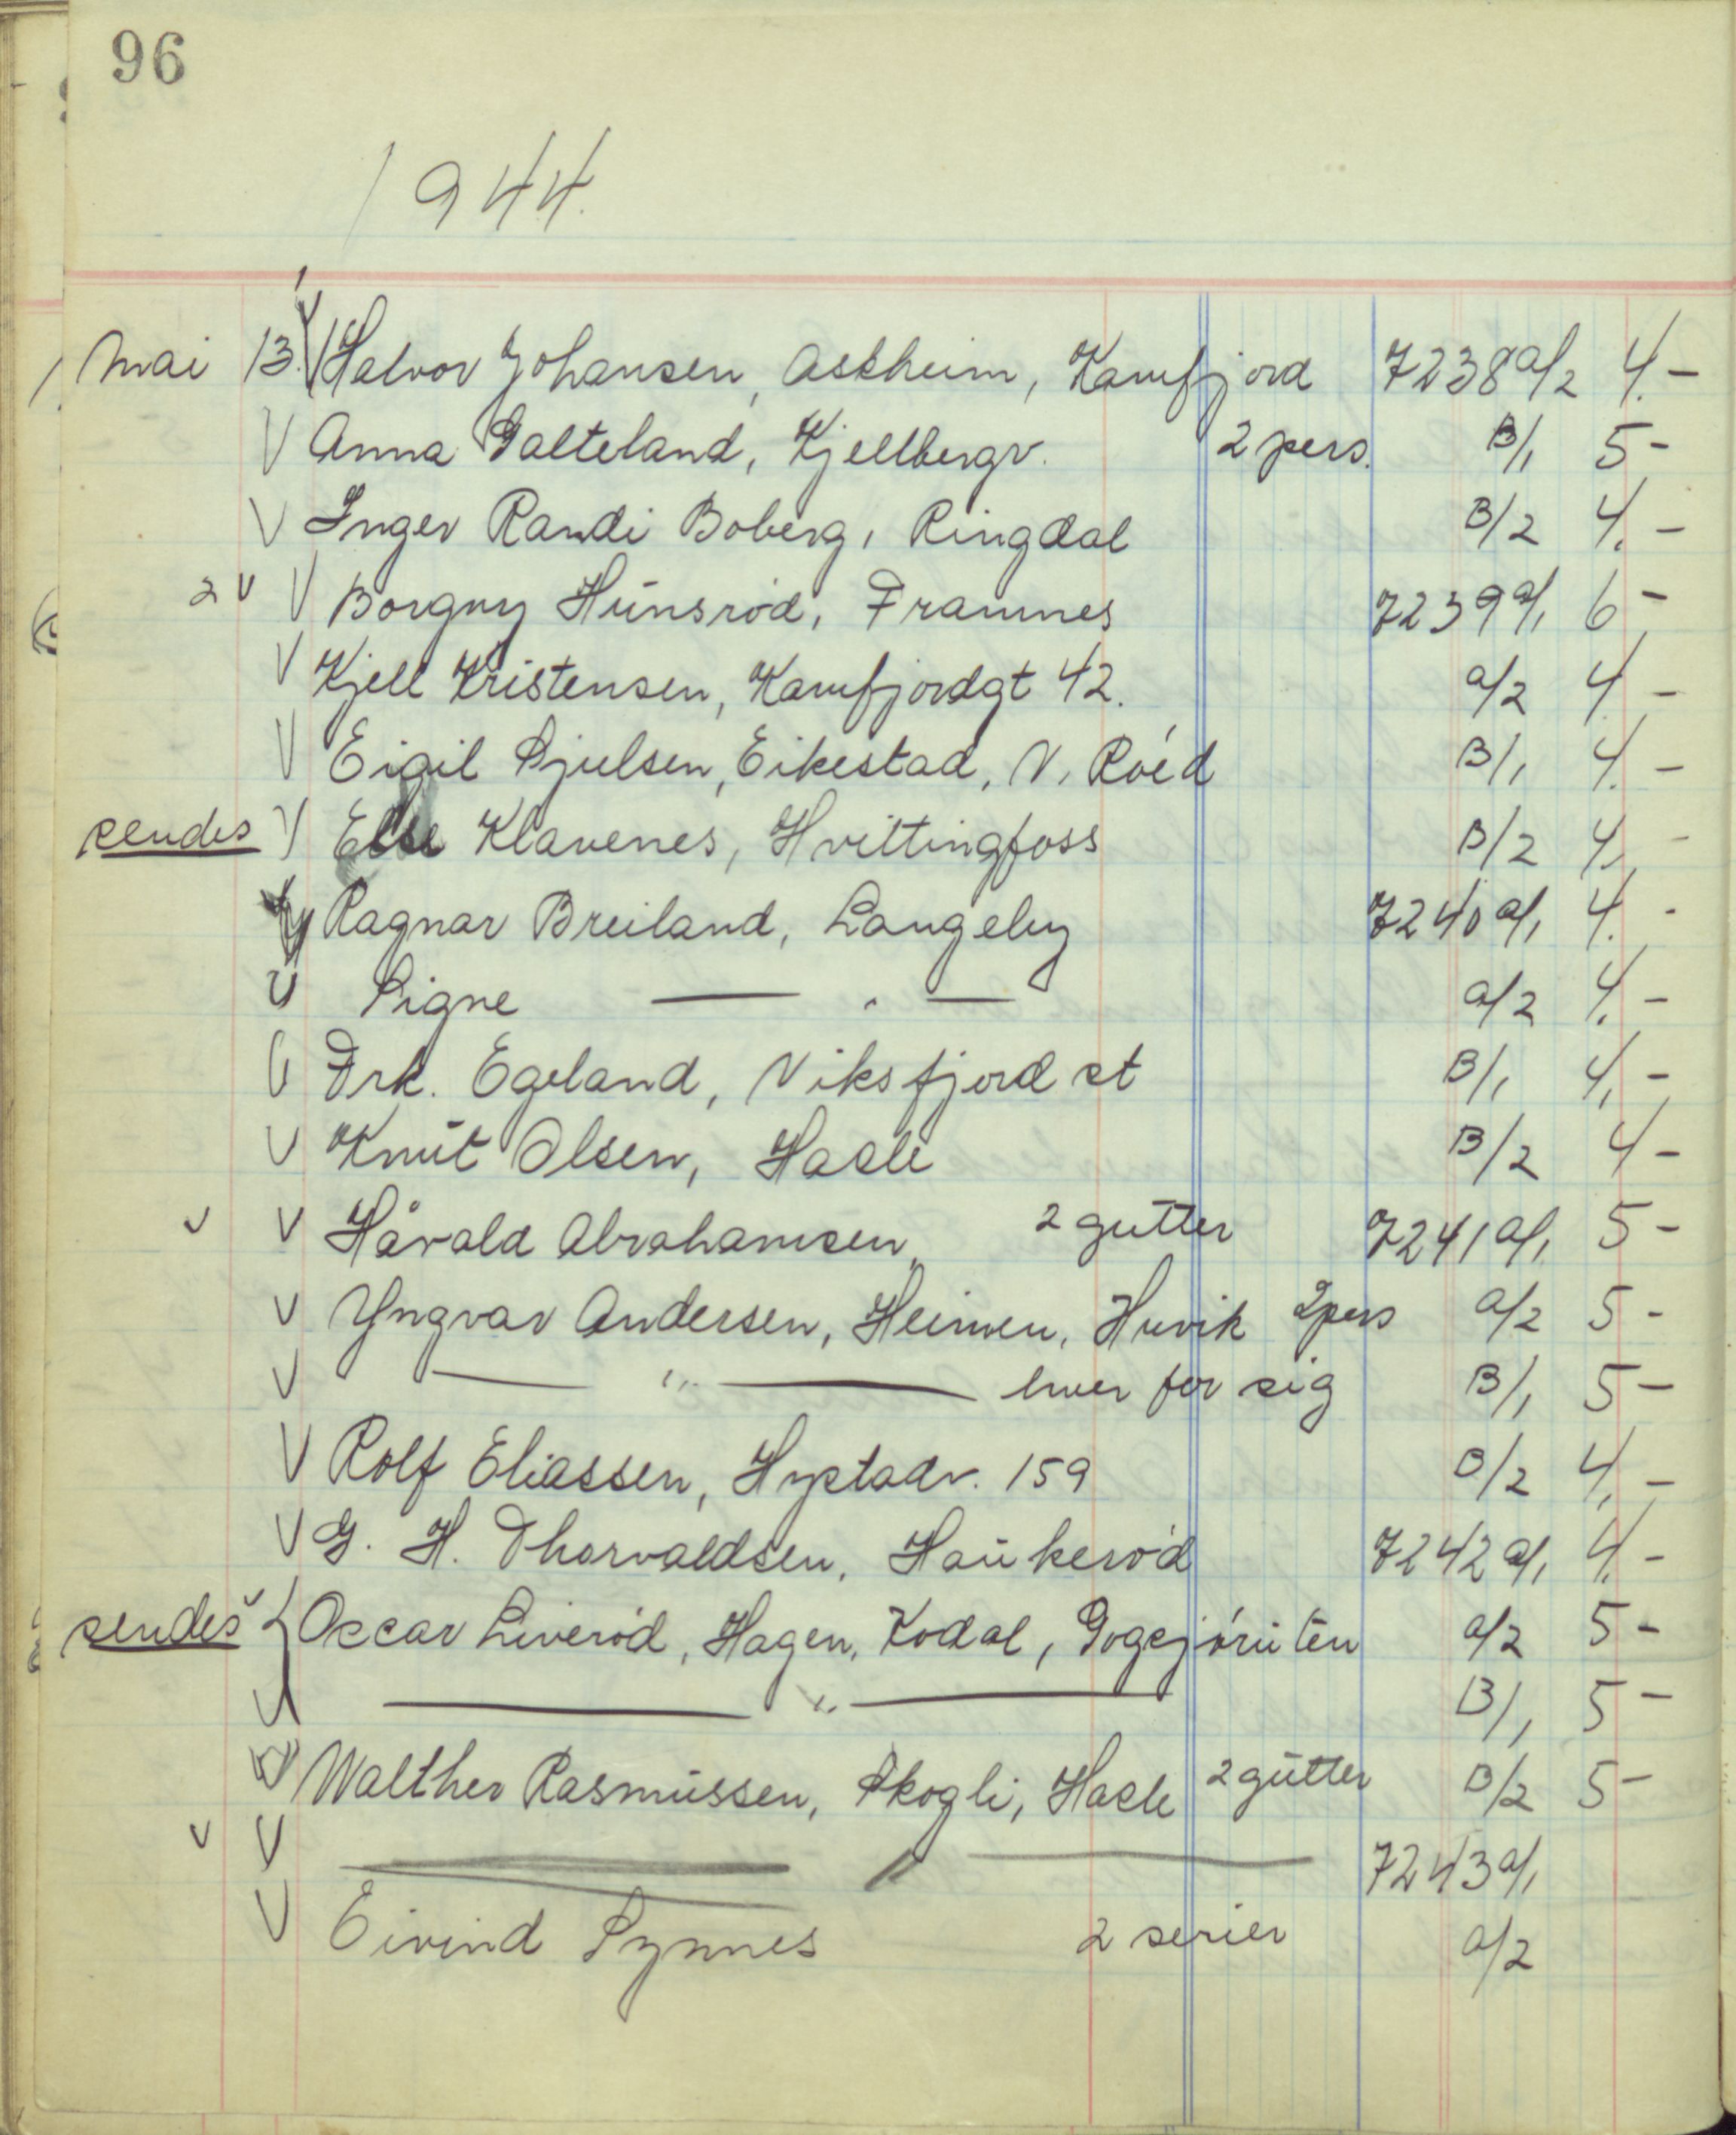 96
1944.
Mai 13. V Halvor Johansen, Askheim, Kamfjord 7238 a/2 4.-
V Anna Galteland, Kjellbergv. 2 pers. B/1 5-
V Inger Randi Boberg, Ringdal B/2 4.-
2 V V Borgny Hunsrød, Framnes 7239 a/1 6-
V Kjell Kristensen, Kamfjordgt 42. a/2 4-
V Eigil Sjuelsen, Eikestad, N. Røed B/1 4.-
sendes V Else Klavenes, Hvittingfoss B/2 4.-
V Ragnar Breiland, Langeby 7240 a/1 4.-
V Signe — " — a/2 4.-
V Frk. Egeland, Viksfjord st B/1 4,-
V Knut Olsen, Hasle B/2 4-
V V Håvald Abrahamsen, 2 gutter 7241 a/1 5-
V Yngvar Andersen, Heimen, Huvik 2 pers a/2 5-
V — " — hver for sig B/1 5-
V Rolf Eliassen, Hystadv. 159 B/2 4,-
V G. H. Thorvaldsen, Haukerød 7242 a/1 4.-
sendes V Oscar Liverød, Hagen, Kodal, Gogsjøruten a/2 5-
V — " — B/1 5-
V Walther Rasmussen, Skogli, Hasle 2 gutter B/2 5-
V V — " — 7243 a/1
V Eivind Synnes 2 serier a/2